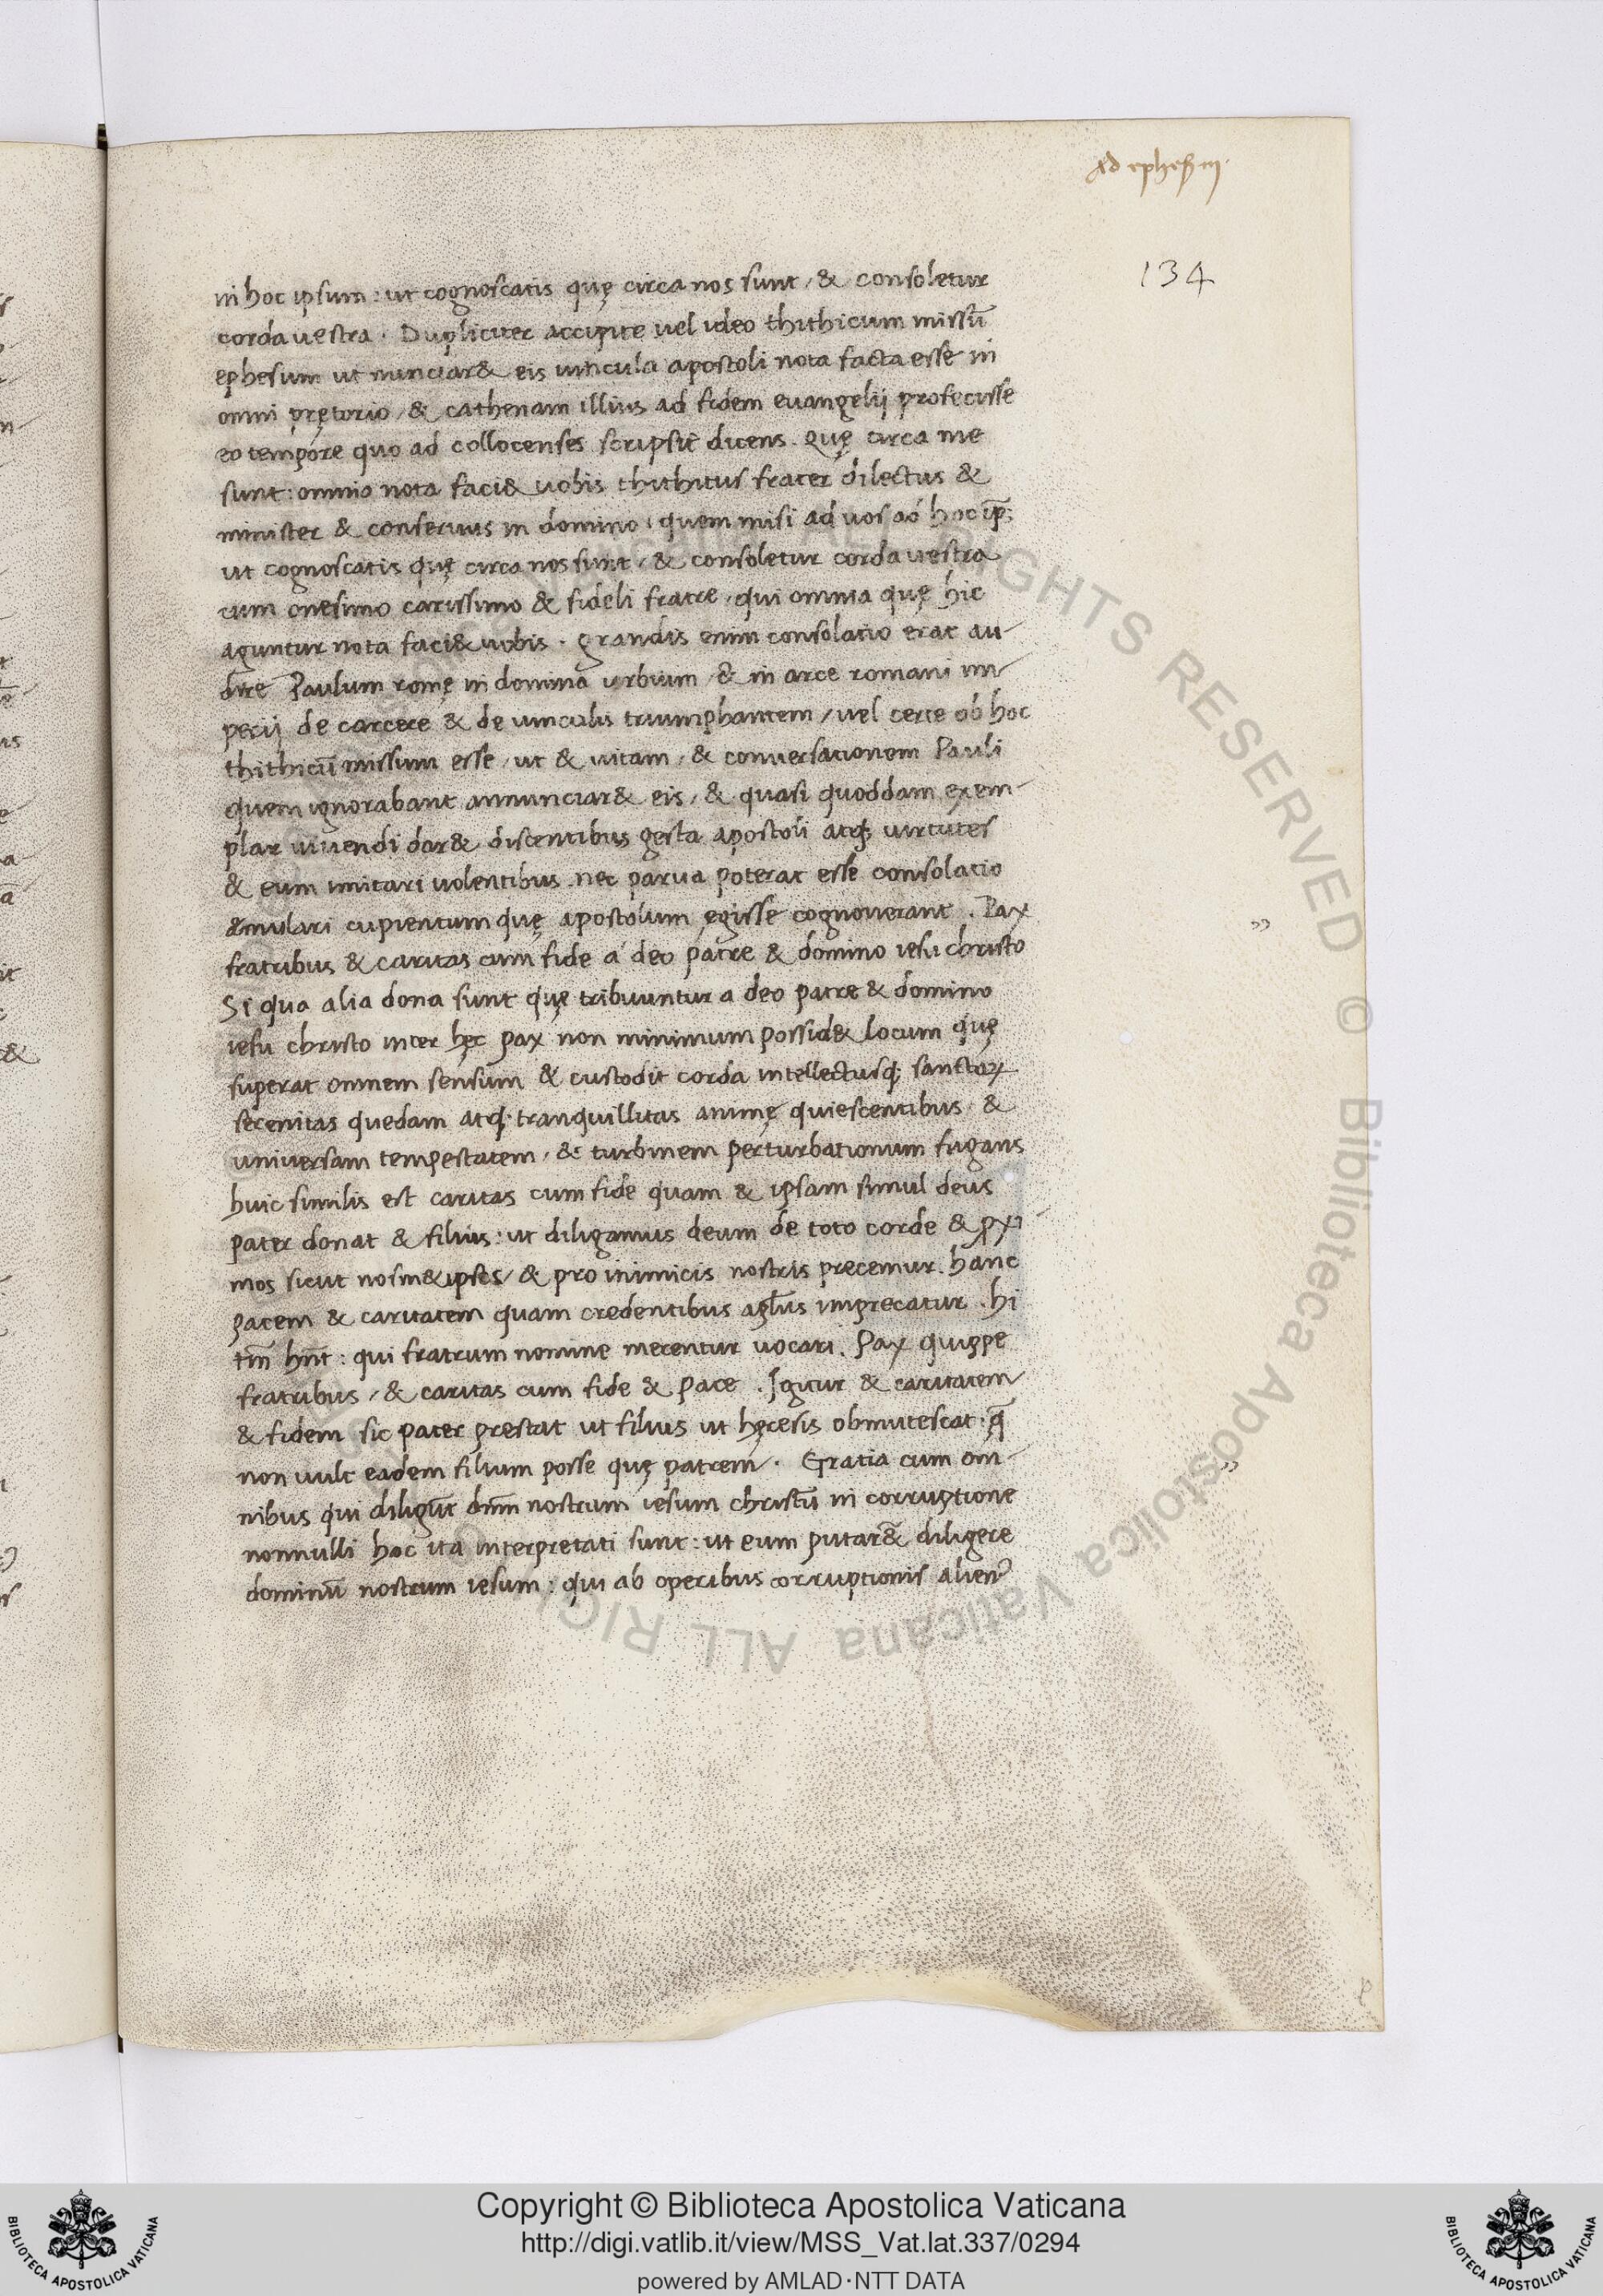 Ad ephes iij.
134
in hoc ipsum: ut cognoscatis quę circa nos sunt, & consoletur
corda vestra. Dupliciter accipite vel ideo thithicum missū
ephesum ut nunciar& eis vincula apostoli nota facta esse in
omni pretorio, & cathenam illius ad fidem evangelij profecisse
eo tempore quo ad collocenses scripsit dicens. Quę circa me
sunt: omnia nota faci& vobis thithicus frater dilectus &
minister & conservus in domino, quem misi ad vos ad hoc ip̄;
ut cognoscatis quę circa nos sunt, & consoletur corda vestra
cum onesimo carissimo & fideli fratre, qui omnia quę hic
aguntur nota faci& vobis. grandis enim consolatio erat au-
dire Paulum romę in domina urbium, & in arce romani im-
perij de carcere & de vinculis triumphantem, vel certe ob hoc
thithicū missum esse, ut & vitam, & conversationem Pauli
quem ignorabant annunciar& eis, & quasi quoddam exem-
plar vivendi dar& discentibus gesta apostoli atq; virtutes
& eum imitari volentibus. nec parva poterat esse consolatio
æmulari cupientum quę apostolum egisse cognoverant. Pax
fratribus & caritas cum fide a deo patre & domino iesu christo
Si qua alia dona sunt quę tribuuntur a deo patre & domino
iesu christo inter hęc pax non minimum possid& locum quę
superat omnem sensum & custodit corda intellectusq; sanctoꝝ
serenitas quedam atq; tranquillitas animę quiescentibus &
universam tempestatem, & turbinem perturbationum fugans
huic similis est caritas cum fide quam & ipsam simul deus
pater donat & filius: ut diligamus deum de toto corde & ꝓxi
mos sicut nosm&ipsos, & pro inimicis nostris precemur. hanc
pacem & caritatem quam credentibus apl̄us imprecatur. hi
tm̄ hn̄t: qui fratrum nomine merentur vocari. Pax quippe
fratribus, & caritas cum fide & pace. Igitur & caritatem
& fidem sic pater prestat ut filius ut hęresis obmutescat. q̄
non vult eadem filium posse quę patrem. Gratia cum om-
nibus qui diligūt dn̄m nostrum iesum christū in corruptione
nonnulli hoc ita interpretati sunt: ut eum putar&̄ diligere
dominū nostrum iesum: qui ab operibus corruptionis alien⁹
"
"
Copyright © Biblioteca Apostolica Vaticana
http://digi.vatlib.it/view/MSS_Vat.lat.337/0294
powered by AMLAD·NTT DATA
BIBLIOTECA APOSTOLICA VATICANA
BIBLIOTECA APOSTOLICA VATICANA
© Biblioteca Apostolica Vaticana ALL RIGHTS RESERVED